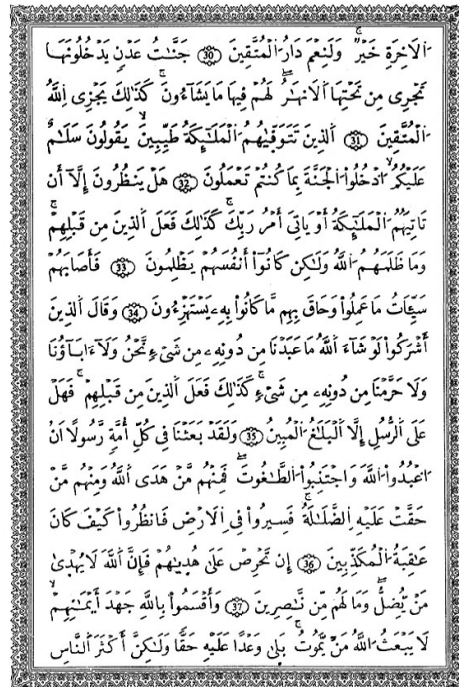 اَلَاخِرَةِ خَيْرٌ وَلَنِعْمَ دَارُ اُ۬لْمُتَّقِينَ 30 جَنَّٰتُ عَدْنٖ يَدْخُلُونَهَا
تَجْرِى مِن تَحْتِهَا اَ۬لَانْهَٰرُ لَهُمْ فِيهَا مَا يَشَآءُونَ كَذَٰلِكَ يَجْزِى اِ۬للَّهُ
اُ۬لْمُتَّقِينَ 31 اَ۬لذِينَ تَتَوَفّٜيٰهُمُ اُ۬لْمَلَٰٓئِكَةُ طَيِّبِينَ يَقُولُونَ سَلَٰمٌ
عَلَيْكُمُ اُ۟دْخُلُواْ اُ۬لْجَنَّةَ بِمَا كُنتُمْ تَعْمَلُونَ 32 هَلْ يَنظُرُونَ إِلَّآ أَن
تَاتِيَهُمُ اُ۬لْمَلَٰٓئِكَةُ أَوْ يَاتِىَ أَمْرُ رَبِّكَ كَذَٰلِكَ فَعَلَ اَ۬لذِينَ مِن قَبْلِهِمْ
وَمَا ظَلَمَهُمُ اُ۬للَّهُ وَلَٰكِن كَانُوٓاْ أَنفُسَهُمْ يَظْلِمُونَ 33 فَأَصَابَهُمْ
سَيِّـَٔاتُ مَا عَمِلُواْ وَحَاقَ بِهِم مَّا كَانُواْ بِهِۦ يَسْتَهْزِءُونَ 34 وَقَالَ اَ۬لذِينَ
أَشْرَكُواْ لَوْ شَآءَ اَ۬للَّهُ مَا عَبَدْنَا مِن دُونِهِۦ مِن شَىْءٖ نَّحْنُ وَلَآ ءَابَآؤُنَا
وَلَا حَرَّمْنَا مِن دُونِهِۦ مِن شَىْءٖ كَذَٰلِكَ فَعَلَ اَ۬لذِينَ مِن قَبْلِهِمْ فَهَلْ
عَلَى اَ۬لرُّسُلِ إِلَّا اَ۬لْبَلَٰغُ اُ۬لْمُبِينُ 35 وَلَقَدْ بَعَثْنَا فِى كُلِّ أُمَّةٖ رَّسُولًا اَنُ
اُ۟عْبُدُواْ اُ۬للَّهَ وَاجْتَنِبُواْ اُ۬لطَّٰغُوتَ فَمِنْهُم مَّنْ هَدَى اَ۬للَّهُ وَمِنْهُم مَّنْ
حَقَّتْ عَلَيْهِ اِ۬لضَّلَٰلَةُ فَسِيرُواْ فِى اِ۬لَارْضِ فَانظُرُواْ كَيْفَ كَانَ
عَٰقِبَةُ اُ۬لْمُكَذِّبِينَ 36 إِن تَحْرِصْ عَلَىٰ هُدٜيٰهُمْ فَإِنَّ اَ۬للَّهَ لَا يُهْدَىٰ
مَنْ يُّضِلُّ وَمَا لَهُم مِّن نَّٰصِرِينَ 37 وَأَقْسَمُواْ بِاللَّهِ جَهْدَ أَيْمَٰنِهِمْ
لَا يَبْعَثُ اُ۬للَّهُ مَنْ يَّمُوتُ بَلَىٰ وَعْدًا عَلَيْهِ حَقًّا وَلَٰكِنَّ أَكْثَرَ اَ۬لنَّاسِ